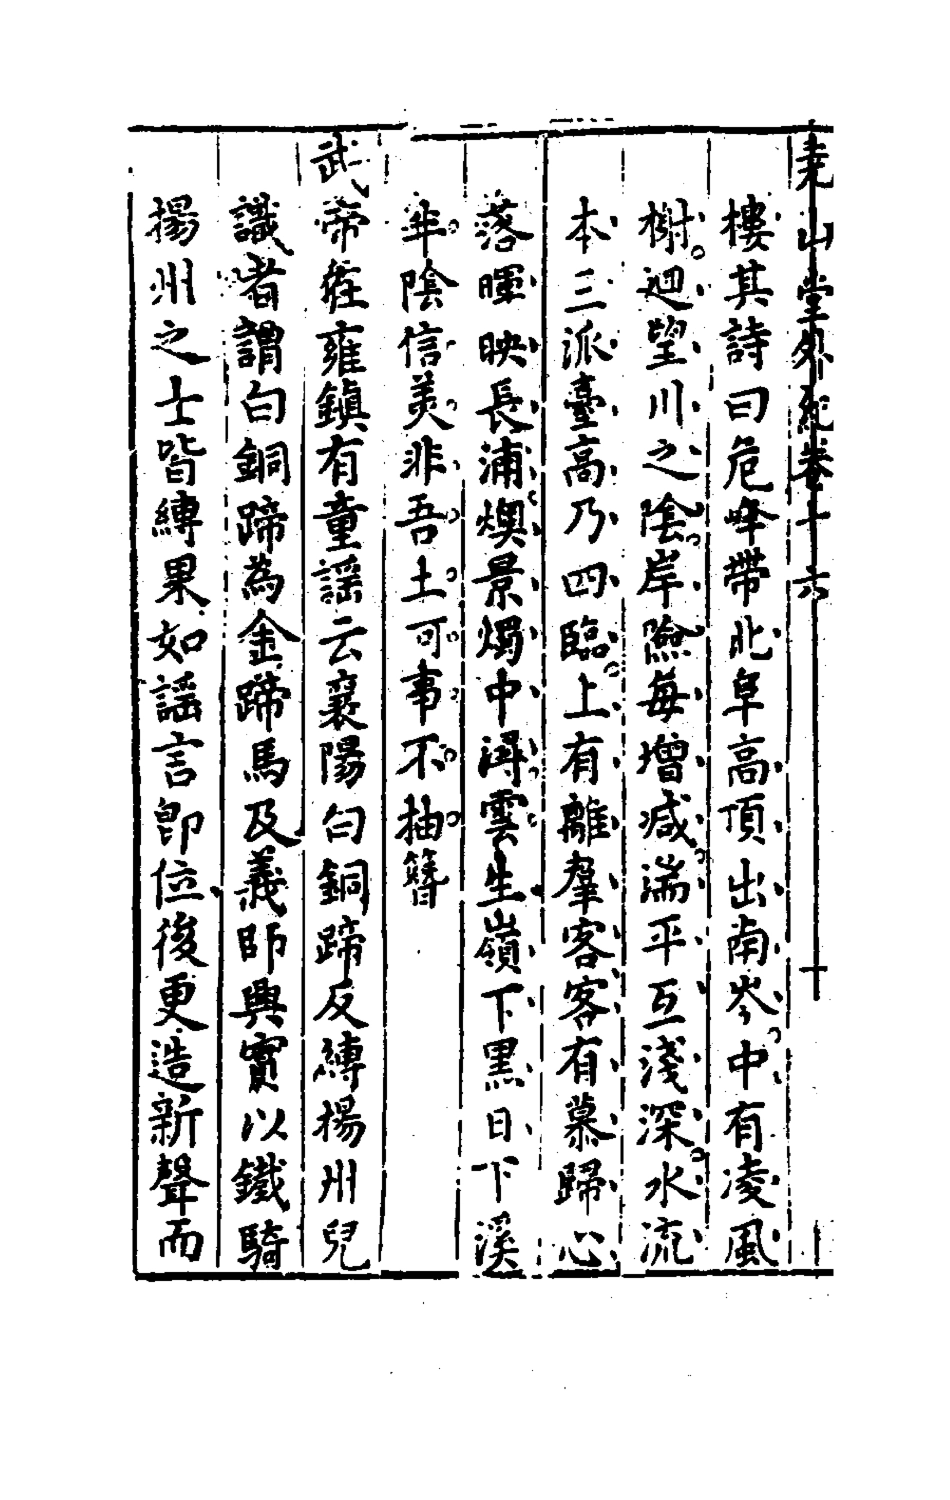 堯山堂外紀卷十六 十
樓其詩曰危峰帶北阜高頂出南岑中有凌風
榭迴望川之陰岸險每增减湍平互淺深水流
本三派臺高乃四臨上有離羣客客有慕歸心
落暉映長浦煥景燭中潯雲生嶺下黑日下溪
半陰信美非吾土可事不抽簪
武帝在雍鎮有童謡云襄陽白銅蹄反縛揚州兒
識者謂白銅蹄為金蹄馬及義師興實以鐵騎
揚州之士皆縛果如謡言即位後更造新聲而